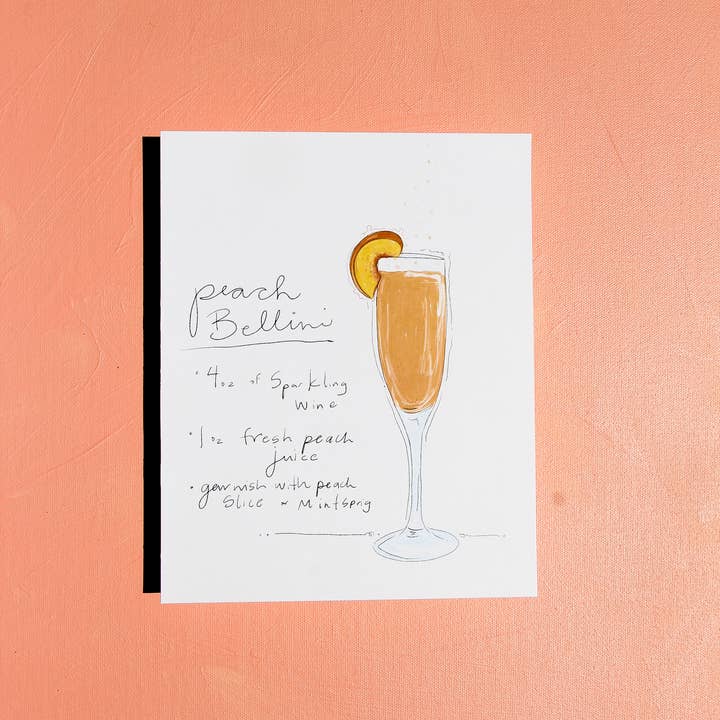 peach
Bellini
• 4oz of Sparkling
wine
• 1oz fresh peach
juice
• garnish with peach
slice or Mint sprig